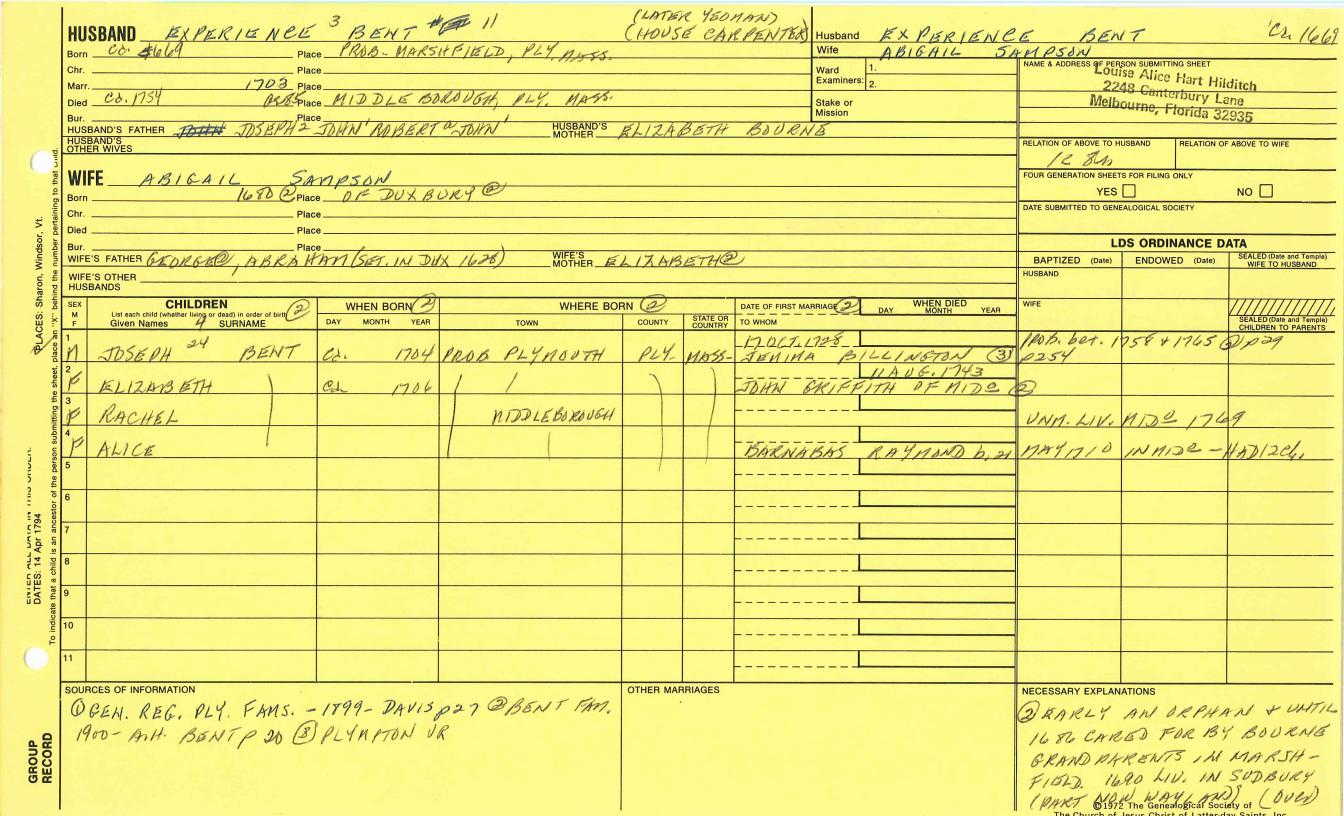 HUSBAND EXPERIENCE 3 BENT 11 (LATER YEOMAN)
(HOUSE CARPENTER)
Born ca. 1669 Place PROB. MARSHFIELD, PLY. MASS.
Chr. Place
Marr. 1703 Place
Died ca. 1754 Place MIDDLEBOROUGH, PLY. MASS.
Bur. Place
HUSBAND'S FATHER JOHN JOSEPH2 JOHN' ROBERT@ JOHN' HUSBAND'S MOTHER ELIZABETH BOURNE
HUSBAND'S OTHER WIVES
WIFE ABIGAIL SAMPSON
Born 1680 ② Place OF DUXBURY ②
Chr. Place
Died Place
Bur. Place
WIFE'S FATHER GEORGE②, ABRAHAM (SET. IN DUX 1628) WIFE'S MOTHER ELIZABETH②
WIFE'S OTHER HUSBANDS
Husband EXPERIENCE BENT Ca. 1669
Wife ABIGAIL SAMPSON
Ward Examiners: 1.
2.
Stake or Mission
NAME & ADDRESS OF PERSON SUBMITTING SHEET
Louise Alice Hart Hilditch
2248 Canterbury Lane
Melbourne, Florida 32935
RELATION OF ABOVE TO HUSBAND RELATION OF ABOVE TO WIFE
FOUR GENERATION SHEETS FOR FILING ONLY
YES NO
DATE SUBMITTED TO GENEALOGICAL SOCIETY
LDS ORDINANCE DATA
BAPTIZED (Date) ENDOWED (Date) SEALED (Date and Temple) WIFE TO HUSBAND
HUSBAND
WIFE
SEALED (Date and Temple) CHILDREN TO PARENTS
SEX M F CHILDREN ② WHEN BORN ② WHERE BORN ② DATE OF FIRST MARRIAGE ② WHEN DIED
List each child (whether living or dead) in order of birth
Given Names 4 SURNAME DAY MONTH YEAR TOWN COUNTY STATE OR COUNTRY TO WHOM DAY MONTH YEAR
1 17 OCT. 1728 prob. bet. 1758 & 1765 ② p29
M JOSEPH 24 BENT Ca. 1704 PROB PLYMOUTH PLY. MASS- JEMIMA BILLINGTON ③ p254
2 11 AUG. 1743
F ELIZABETH Ca. 1706 JOHN GRIFFITH OF MIDo ②
3
F RACHEL MIDDLEBOROUGH UNM. LIV. MIDo 1769
4
F ALICE BARNABAS RAYMOND b. 21 MAY 1710 IN MIDo - HAD 12 Ch.
5
6
7
8
9
10
11
SOURCES OF INFORMATION
① GEN. REG. PLY. FAMS. -1899- DAVIS p27 ② BENT FAM.
1900- A.H. BENT p 20 ③ PLYMPTON VR
OTHER MARRIAGES
NECESSARY EXPLANATIONS
② EARLY AN ORPHAN & UNTIL
1686 CARED FOR BY BOURNE
GRANDPARENTS IN MARSH-
FIELD. 1690 LIV. IN SUDBURY
(PART NOW WAYLAND) (OVER)
©1972 The Genealogical Society of
The Church of Jesus Christ of Latter-day Saints, Inc.
PLACES: Sharon, Windsor, Vt.
ENTER ALL DATA IN THIS ORDER:
DATES: 14 Apr 1794
To indicate that a child is an ancestor of the person submitting the sheet, place an "X" behind the number pertaining to that child.
GROUP RECORD